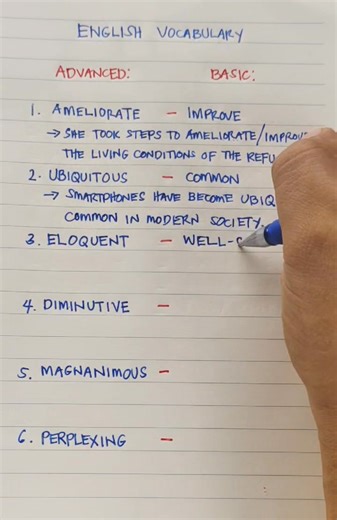 ENGLISH VOCABULARY
ADVANCED: BASIC:
1. AMELIORATE - IMPROVE
→ SHE TOOK STEPS TO AMELIORATE/IMPROVE
THE LIVING CONDITIONS OF THE
2. UBIQUITOUS - COMMON
→ SMARTPHONES HAVE BECOME
COMMON IN MODERN SOCIETY.
3. ELOQUENT - WELL-
4. DIMINUTIVE -
5. MAGNANIMOUS -
6. PERPLEXING -